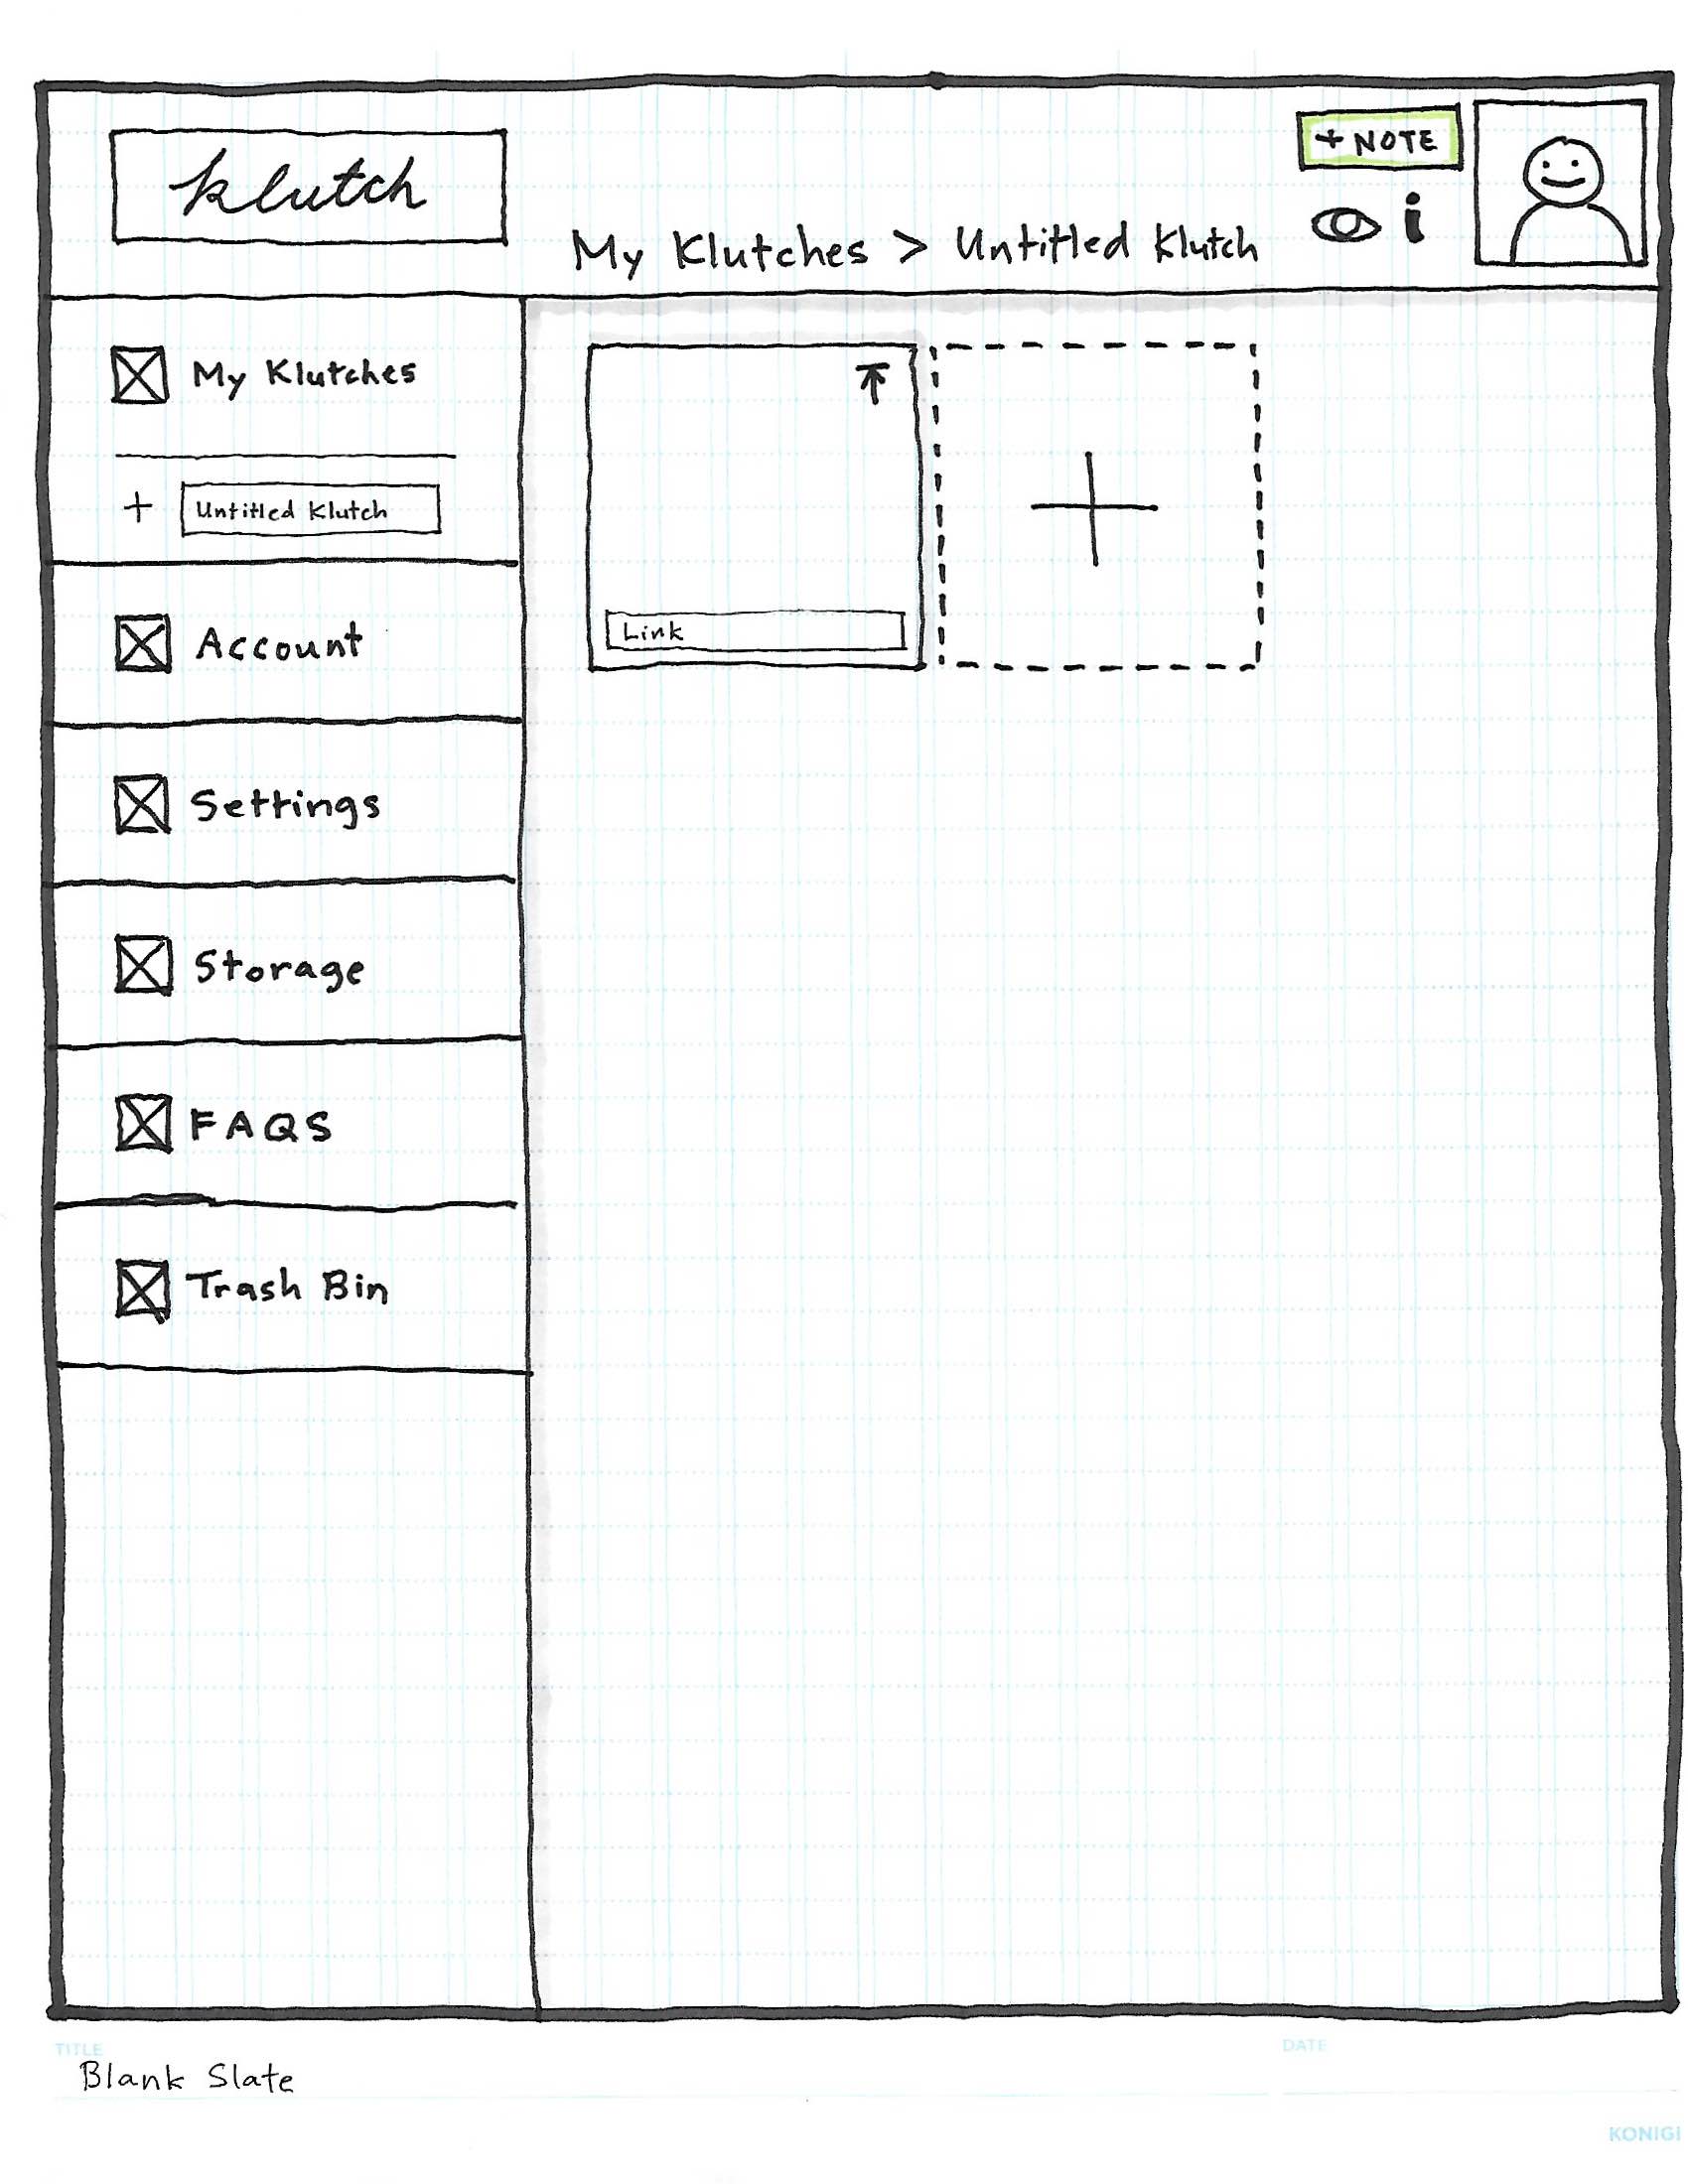 klutch
+ NOTE
My Klutches > Untitled Klutch
i
My Klutches
+ Untitled Klutch
Link
Account
Settings
Storage
FAQS
Trash Bin
TITLE
DATE
Blank Slate
KONIGI